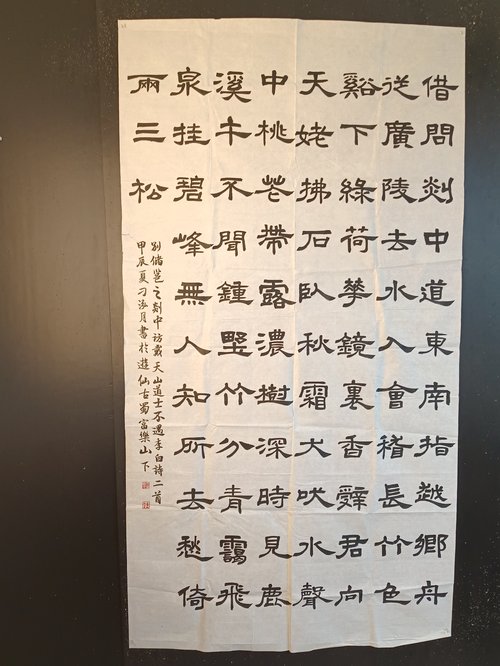 借問剡中道東南指越鄉舟
從廣陵去水入會稽長竹色
谿下綠荷華鏡裏香辭君向
天姥拂石臥秋霜犬吠水聲
中桃花帶露濃樹深時見鹿
溪午不聞鍾埜竹分青靄飛
泉挂碧峰無人知所去愁倚
兩三松
別儲邕之剡中訪戴天山道士不遇李白詩二首
甲辰夏刁月書於遊仙古蜀富樂山下